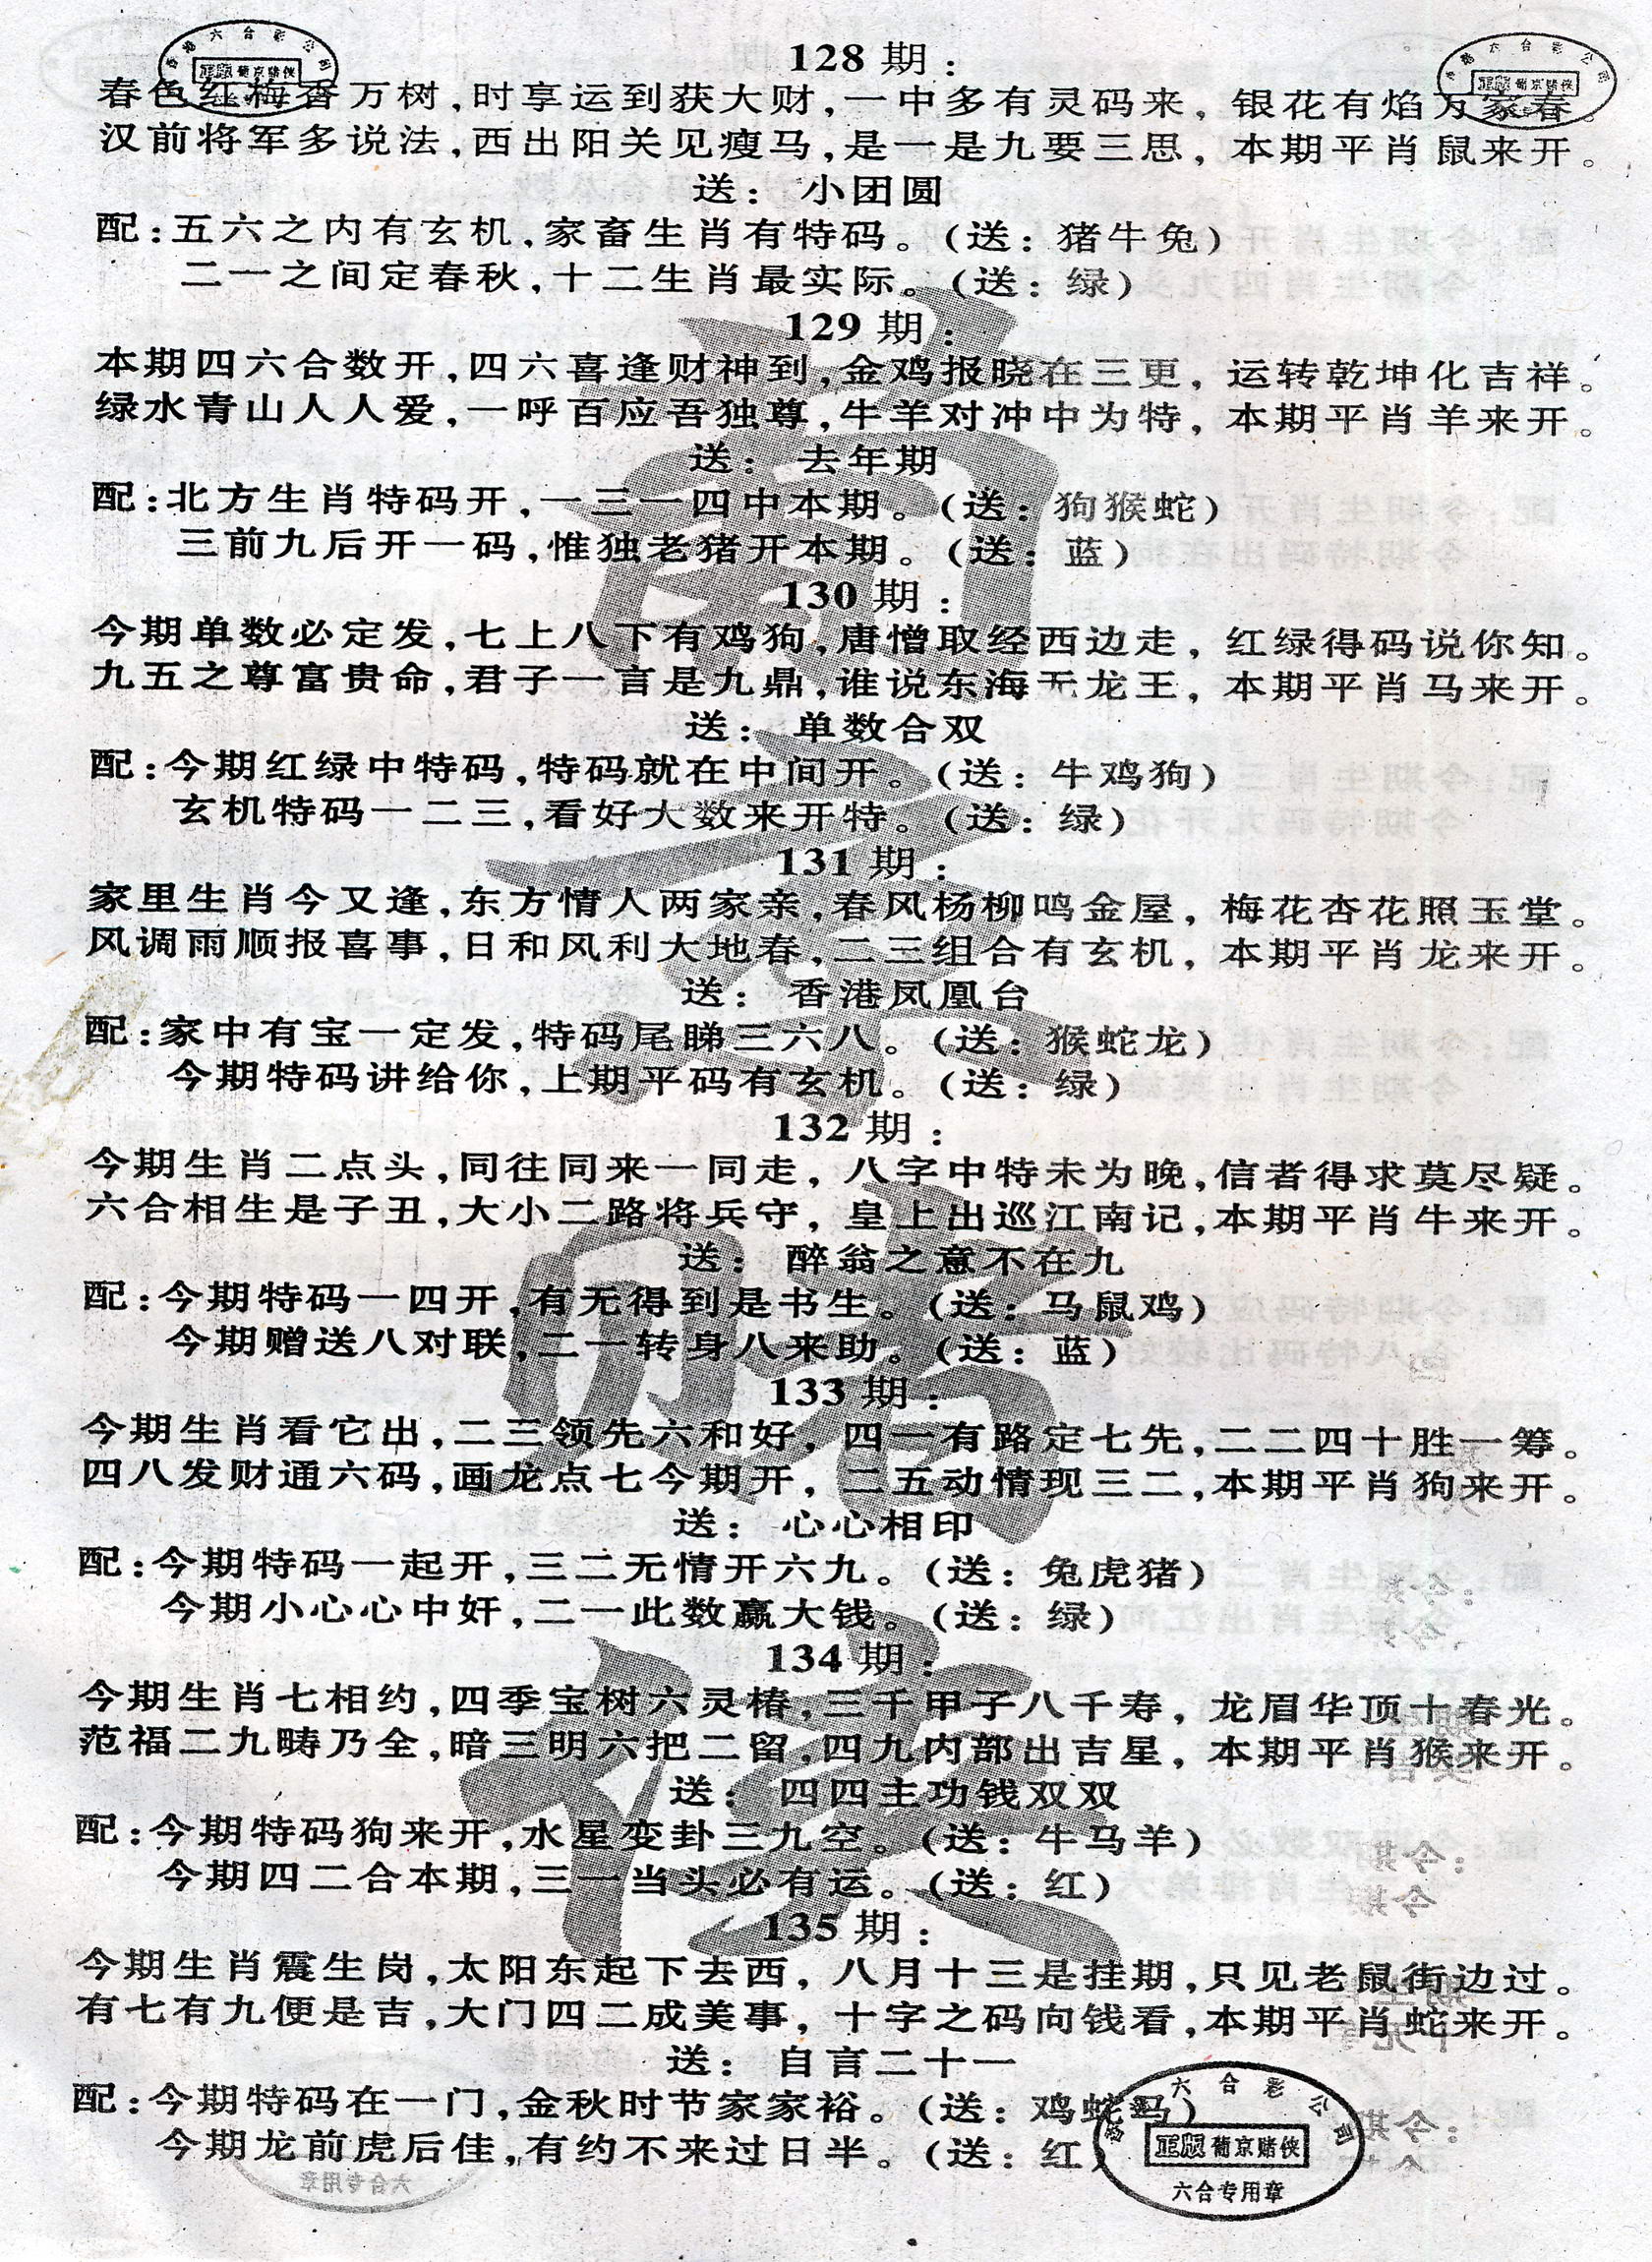 128期：
春色红梅香万树,时享运到获大财,一中多有灵码来，银花有焰万家春。
汉前将军多说法,西出阳关见瘦马,是一是九要三思，本期平肖鼠来开。
送：小团圆
配:五六之内有玄机,家畜生肖有特码。(送：猪牛兔)
二一之间定春秋,十二生肖最实际。(送：绿)
129期：
本期四六合数开,四六喜逢财神到,金鸡报晓在三更，运转乾坤化吉祥。
绿水青山人人爱,一呼百应吾独尊,牛羊对冲中为特，本期平肖羊来开。
送：去年期
配:北方生肖特码开,一三一四中本期。(送：狗猴蛇)
三前九后开一码,惟独老猪开本期。(送：蓝)
130期：
今期单数必定发,七上八下有鸡狗,唐憎取经西边走，红绿得码说你知。
九五之尊富贵命,君子一言是九鼎,谁说东海无龙王，本期平肖马来开。
送：单数合双
配:今期红绿中特码,特码就在中间开。(送：牛鸡狗)
玄机特码一二三,看好大数来开特。(送：绿)
131期：
家里生肖今又逢,东方情人两家亲,春风杨柳鸣金屋，梅花杏花照玉堂。
风调雨顺报喜事,日和风利大地春,二三组合有玄机，本期平肖龙来开。
送：香港凤凰台
配:家中有宝一定发,特码尾睇三六八。(送：猴蛇龙)
今期特码讲给你,上期平码有玄机。(送：绿)
132期：
今期生肖二点头,同往同来一同走，八字中特未为晚,信者得求莫尽疑。
六合相生是子丑,大小二路将兵守，皇上出巡江南记,本期平肖牛来开。
送：醉翁之意不在九
配:今期特码一四开,有无得到是书生。(送：马鼠鸡)
今期赠送八对联,二一转身八来助。(送：蓝)
133期：
今期生肖看它出,二三领先六和好，四一有路定七先,二二四十胜一筹。
四八发财通六码,画龙点七今期开，二五动情现三二,本期平肖狗来开。
送：心心相印
配:今期特码一起开,三二无情开六九。(送：兔虎猪)
今期小心心中奸,二一此数赢大钱。(送：绿)
134期：
今期生肖七相约,四季宝树六灵椿,三千甲子八千寿，龙眉华顶十春光。
范福二九畴乃全,暗三明六把二留,四九内部出吉星，本期平肖猴来开。
送：四四主功钱双双
配:今期特码狗来开,水星变卦三九空。(送：牛马羊)
今期四二合本期,三一当头必有运。(送：红)
135期：
今期生肖震生岗,太阳东起下去西，八月十三是挂期,只见老鼠街边过。
有七有九便是吉,大门四二成美事，十字之码向钱看,本期平肖蛇来开。
送：自言二十一
配:今期特码在一门,金秋时节家家裕。(送：鸡蛇马)
今期龙前虎后佳,有约不来过日半。(送：红)
香港六合彩公司
正版葡京赌侠
六合专用章